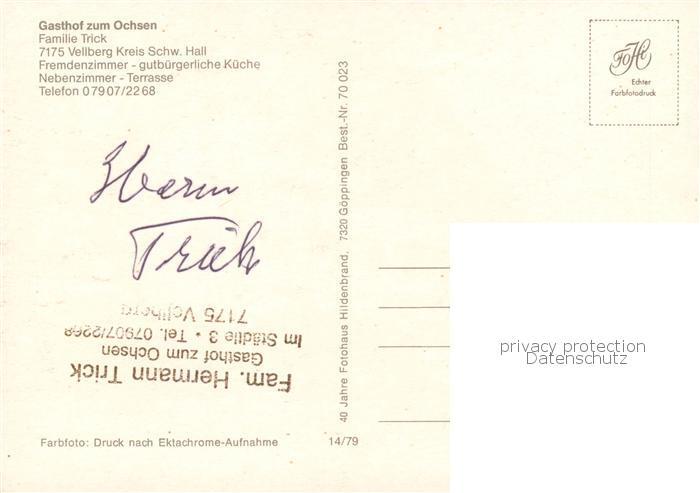 Gasthof zum Ochsen
Familie Trick
7175 Vellberg Kreis Schw. Hall
Fremdenzimmer - gutbürgerliche Küche
Nebenzimmer - Terrasse
Telefon 0 79 07/22 68
Echter
Farbfotodruck
40 Jahre Fotohaus Hildenbrand, 7320 Göppingen Best.-Nr. 70 023
Herrn
Trick
Fam. Hermann Trick
Gasthof zum Ochsen
Im Städtle 3 • Tel. 07907/2268
7175 Vellberg
privacy protection
Datenschutz
Farbfoto: Druck nach Ektachrome-Aufnahme
14/79